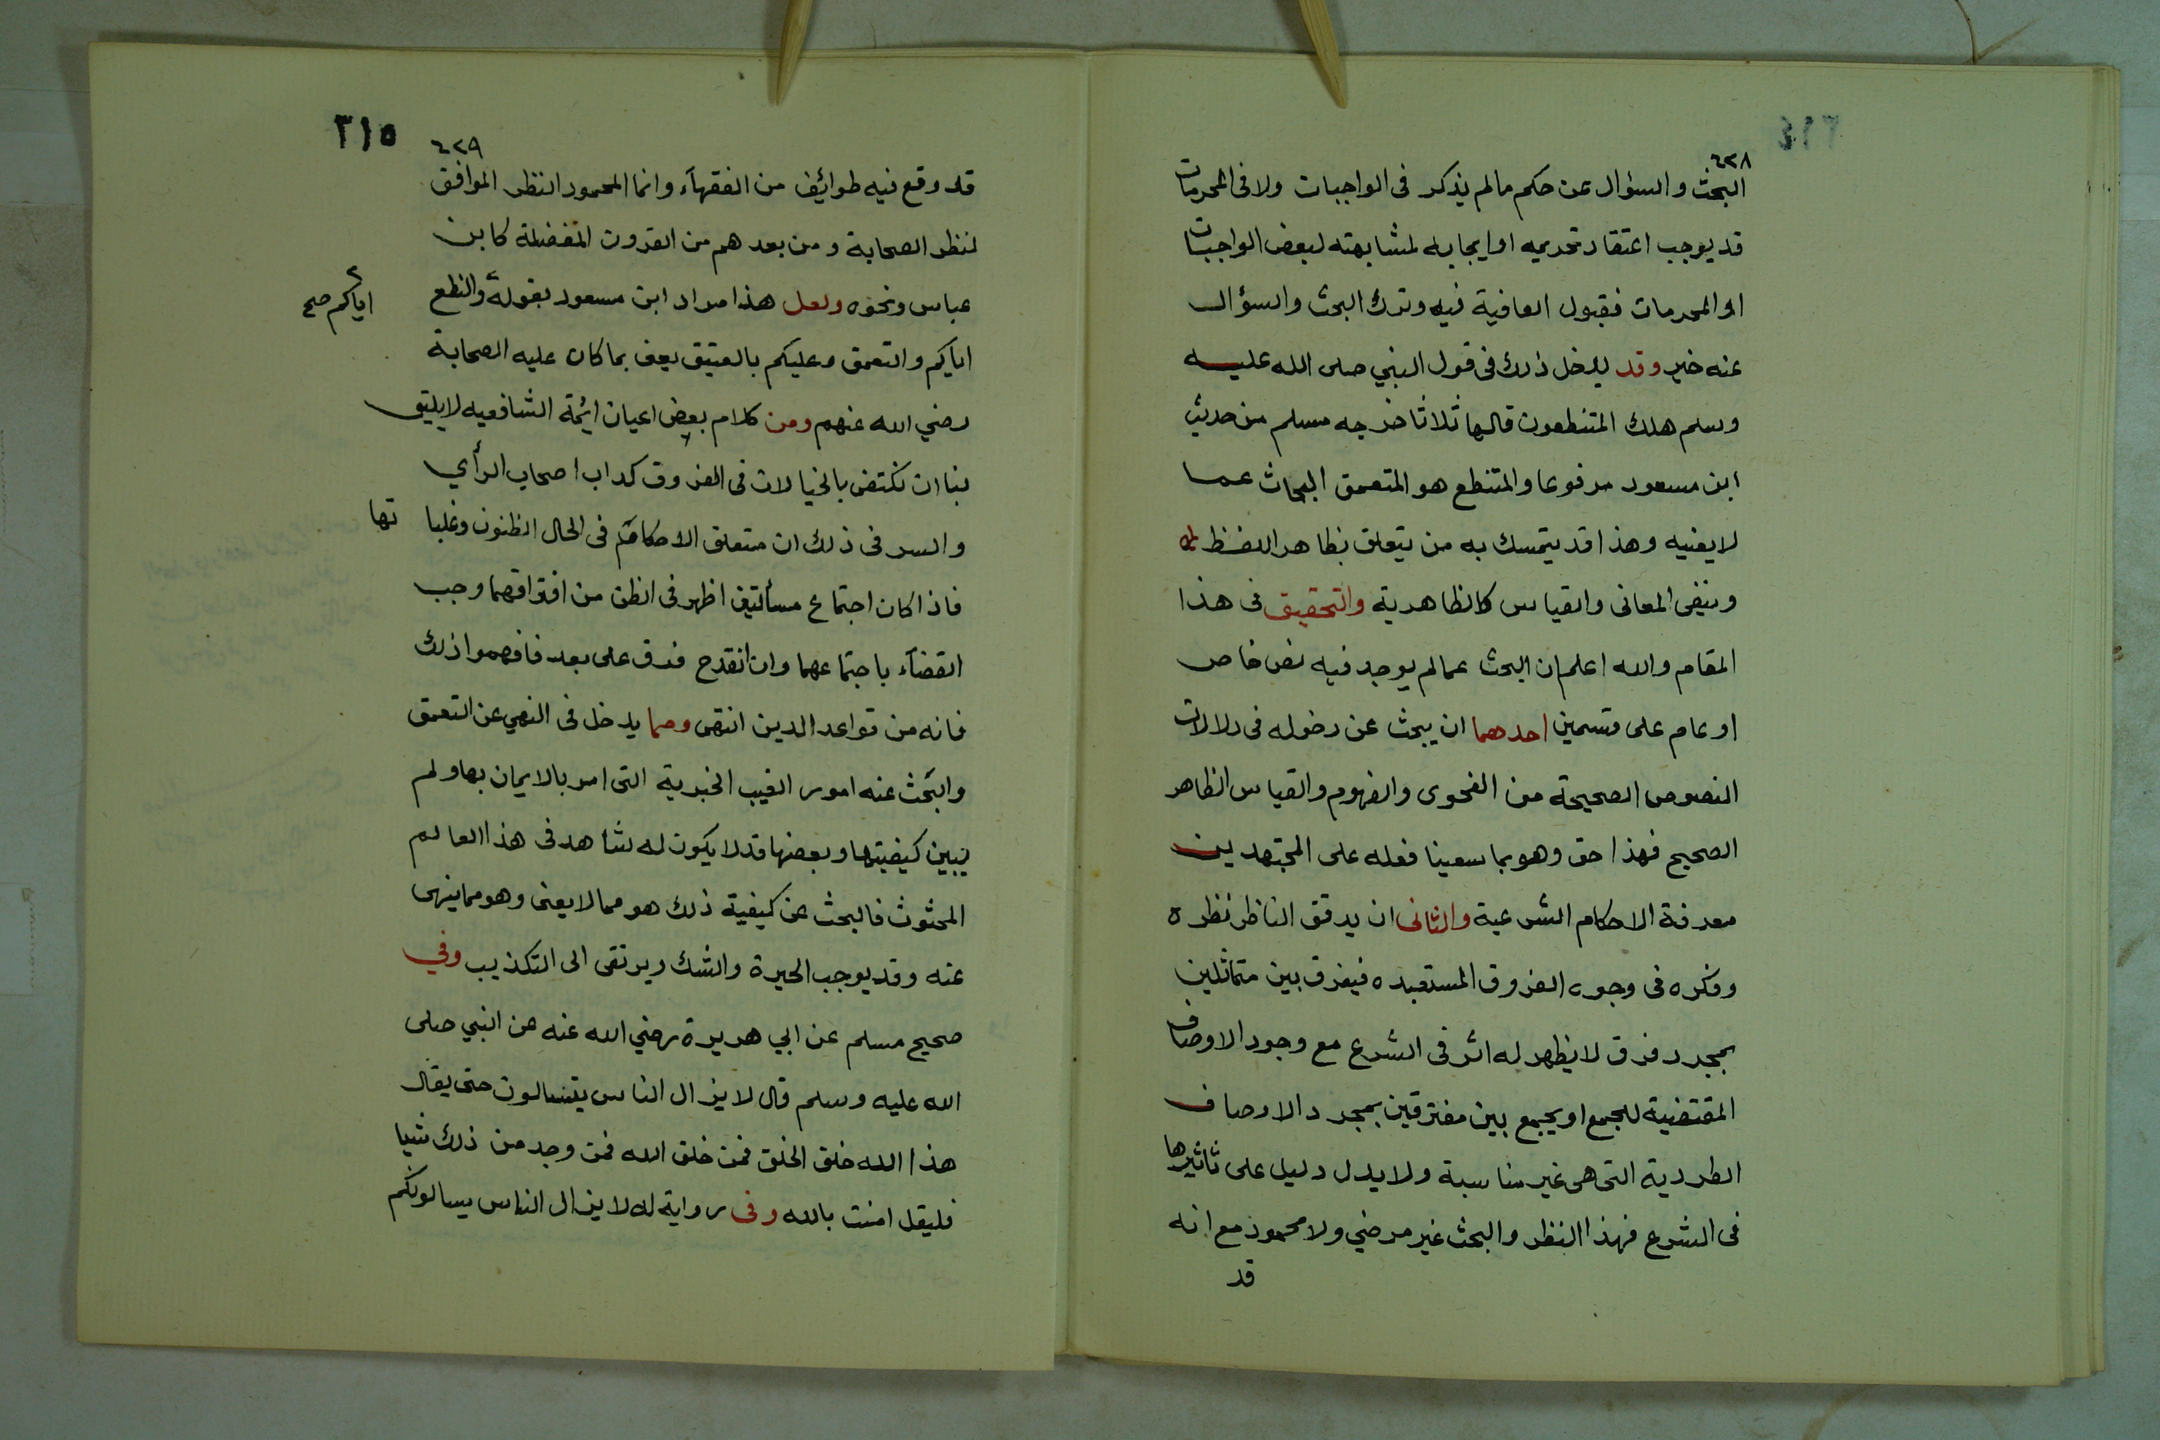 ٣١٤
٤٢٨
البحث والسؤال عن حكم مالم يذكر فى الواجبات ولا فى المحرمات
قد يوجب اعتقاد تحريمه او ايجابه لمشابهته لبعض الواجبات
او المحرمات فقبول العافية فيه وترك البحث والسؤال
عنه خير وقد يدخل ذلك فى قول النبي صلى الله عليه
وسلم هلك المتنطعون قالها ثلاثا خرجه مسلم من حديث
ابن مسعود مرفوعا والمتنطع هو المتعمق البحاث عما
لا يعنيه وهذا قد يتمسك به من يتعلق بظاهر اللفظ
وينفى المعانى والقياس كالظاهرية والتحقيق فى هذا
المقام والله اعلم ان البحث عمالم يوجد فيه نص خاص
او عام على قسمين احدهما ان يبحث عن دخوله فى دلالات
النصوص الصحيحة من الفحوى والفهوم والقياس الظاهر
الصحيح فهذا حق وهو بما سعينا فعله على المجتهدين
معرفة الاحكام الشرعية والثانى ان يدقق الناظر نظره
وفكره فى وجوه الفروق المستعبده فيفرق بين متماثلين
بمجرد فرق لا يظهر له اثر فى الشرع مع وجود الاوصاف
المقتضية للجمع او يجمع بين مفترقين بمجرد الاوصاف
الطردية التى هى غير مناسبة ولا يدل دليل على تاثيرها
فى الشرع فهذا النظر والبحث غير مرضي ولا محمود مع انه
قد
٣١٥
٤٢٩
قد وقع فيه طوائف من الفقهآء وانما المحمود النظر الموافق
لنظر الصحابة ومن بعدهم من القرون المفضلة كابن
عباس ونحوه ولعل هذا مراد ابن مسعود بقوله والنطع
اياكم صح
اياكم والتعمق وعليكم بالعتيق يعنى بما كان عليه الصحابة
رضي الله عنهم ومن كلام بعض اعيان ائمة الشافعيه لا يليق
بنا ان نكتفى بالخيالات فى الفروق كداب اصحاب الرأي
والسر فى ذلك ان متعلق الاحكام فى الحال الظنون وغلبا
تها
فاذا كان اجتماع مسألتين اظهر فى الظن من افتراقهما وجب
القضآء باجتماعهما وان انقدح فرق على بعد فافهموا ذلك
فانه من قواعد الدين انتهى ومما يدخل فى النهي عن التعمق
والبحث عنه امور الغيب الخبرية التى امر بالايمان بها ولم
يبين كيفيتها وبعضها قد لا يكون له شاهد فى هذا العالم
المحثوث فالبحث عن كيفية ذلك هو مما لا يعنى وهو مما ينهى
عنه وقد يوجب الحيرة والشك ويرتقى الى التكذيب وفي
صحيح مسلم عن ابي هريرة رضي الله عنه عن النبي صلى
الله عليه وسلم قال لا يزال الناس يتسالون حتى يقال
هذا الله خلق الخلق فمن خلق الله فمن وجد من ذلك شيا
فليقل امنت بالله وفى رواية له لا يزال الناس يسالونكم